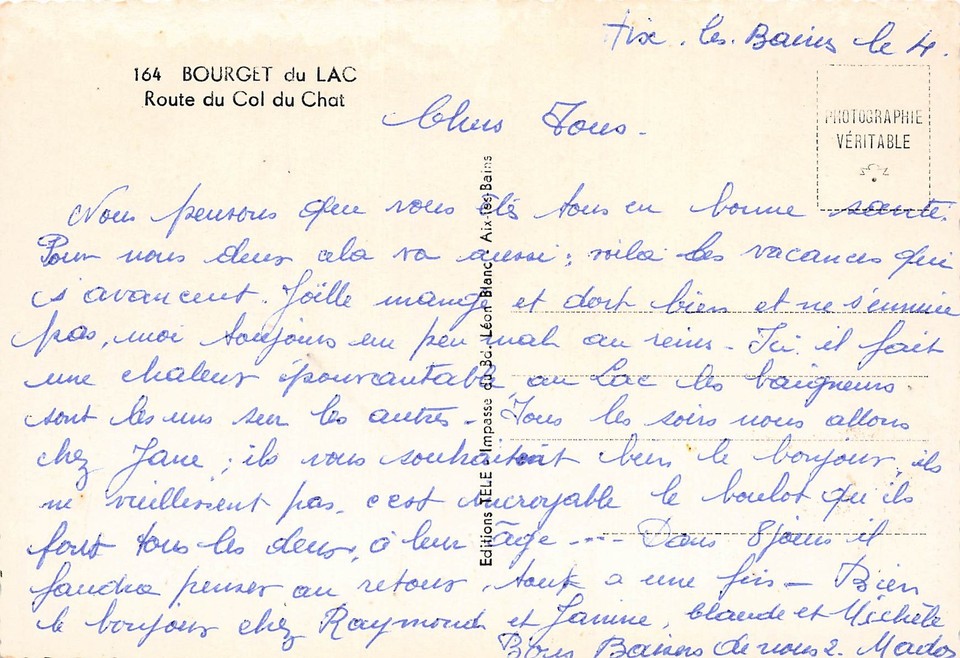 Aix. les. Bains le 4.
164 BOURGET du LAC
Route du Col du Chat
PHOTOGRAPHIE
VÉRITABLE
Chers Tous.
Nous pensons que vous êtes tous en bonne santé.
Pour nous deux cela va aussi ; voilà les vacances qui
s'avancent. Joëlle mange et dort bien et ne s'ennuie
pas, moi toujours un peu mal au reins - Ici il fait
une chaleur épouvantable au Lac les baigneurs
sont les uns sur les autres - Tous les soirs nous allons
chez Jane ; ils vous souhaitent bien le bonjour, ils
ne vieillissent pas. c'est incroyable le boulot qu'ils
font tous les deux, à leur âge --- Dans 8 jours il
faudra penser au retour, tout a une fin - Bien
le bonjour chez Raymond et Janine, Claude et Michèle
Bons Baisers de nous 2. Mado
Editions TELE - Impasse du Bd. Léon Blanc - Aix-les-Bains